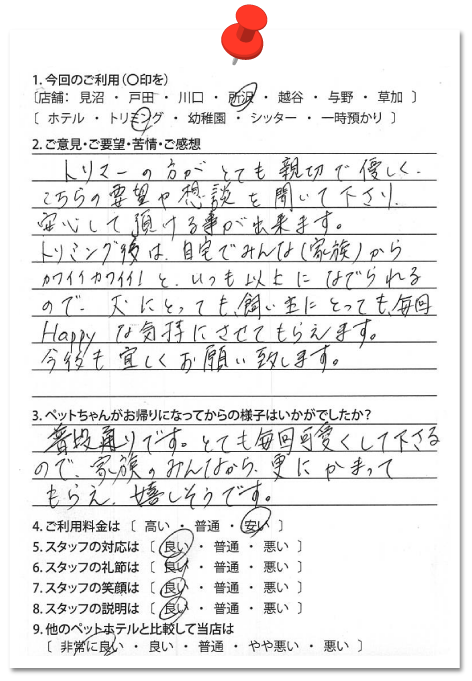 1. 今回のご利用(〇印を)
〔店舗: 見沼 ・ 戸田 ・ 川口 ・ 所沢 ・ 越谷 ・ 与野 ・ 草加 〕
〔 ホテル ・ トリミング ・ 幼稚園 ・ シッター ・ 一時預かり 〕
2. ご意見・ご要望・苦情・ご感想
トリマーの方がとても親切で優しく、
こちらの要望や想談を聞いて下さり、
安心して頂ける事が出来ます。
トリミング後は、自宅でみんな(家族)から
カワイイカワイイ!と、いつも以上になでられる
ので、犬にとっても、飼い主にとっても、毎回
Happyな気持にさせてもらえます。
今後も宜しくお願い致します。
3. ペットちゃんがお帰りになってからの様子はいかがでしたか?
普段通りです。とても毎回可愛くして下さる
ので、家族のみんなから、更にかまって
もらえ、嬉しそうです。
4. ご利用料金は 〔 高い ・ 普通 ・ 安い 〕
5. スタッフの対応は 〔 良い ・ 普通 ・ 悪い 〕
6. スタッフの礼節は 〔 良い ・ 普通 ・ 悪い 〕
7. スタッフの笑顔は 〔 良い ・ 普通 ・ 悪い 〕
8. スタッフの説明は 〔 良い ・ 普通 ・ 悪い 〕
9. 他のペットホテルと比較して当店は
〔 非常に良い ・ 良い ・ 普通 ・ やや悪い ・ 悪い 〕